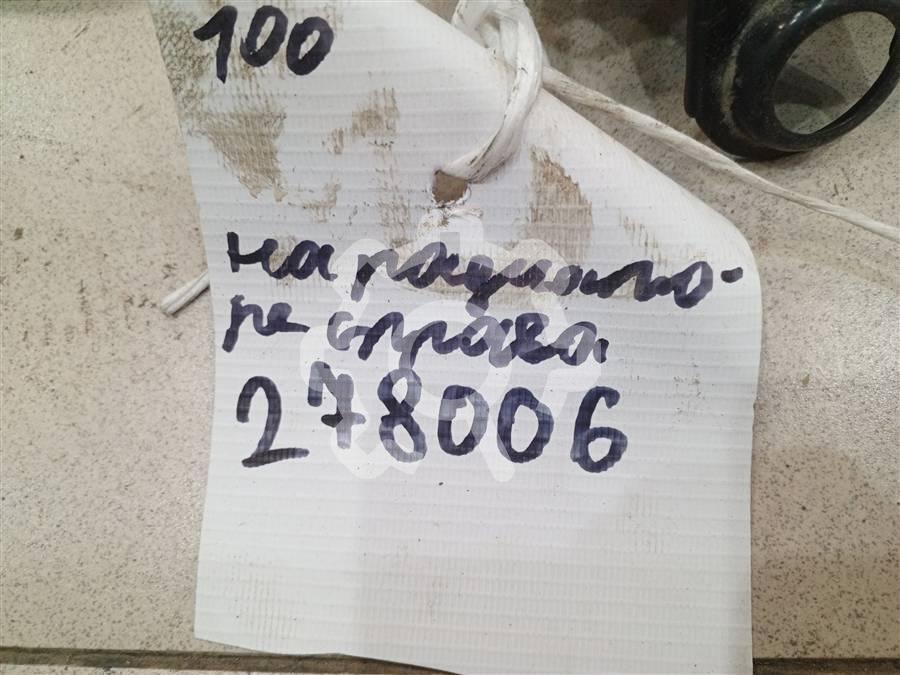 100
на радиато-
ре справа
278006